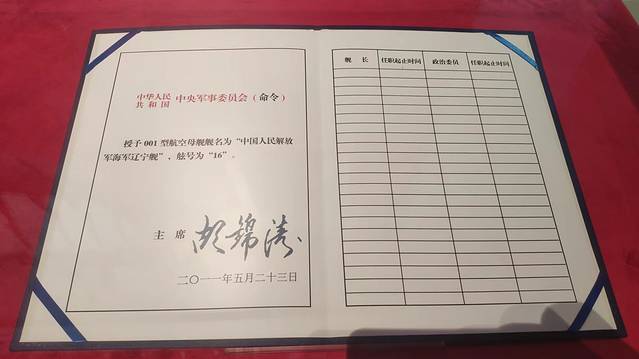 中华人民
共和国 中央军事委员会（命令）
授予001型航空母舰舰名为“中国人民解放
军海军辽宁舰”，舷号为“16”。
主 席 胡锦涛
二〇一一年五月二十三日
舰 长 任职起止时间 政治委员 任职起止时间